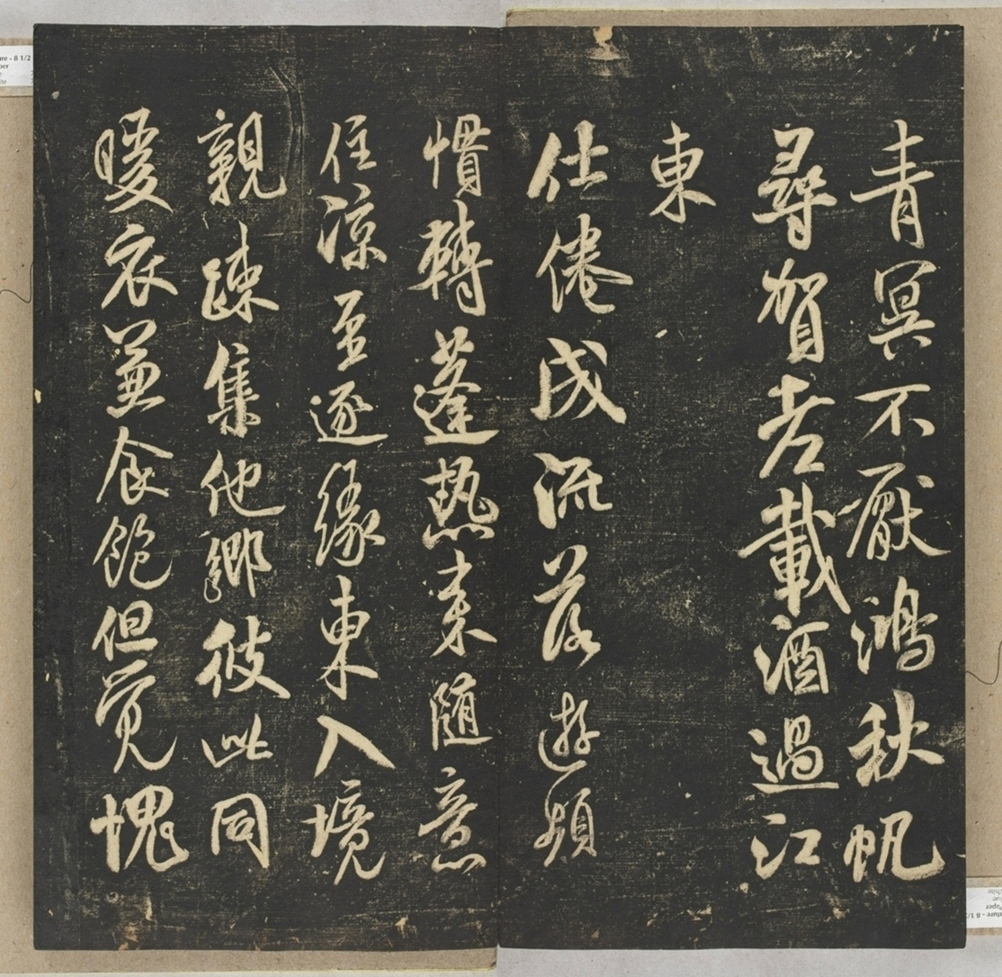 青冥不厭鴻秋帆
尋賀老載酒過江
東
仕倦成流落遊頻
慣轉蓬熱来随意
住涼至逐緣東入境
親踈集他鄉彼此同
暖衣兼食飽但覺愧